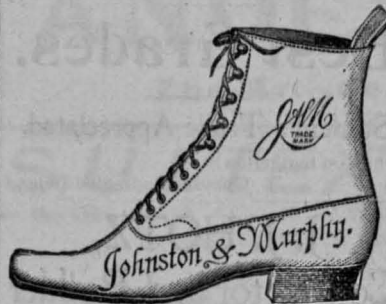 J&M
TRADE
MARK
Johnston & Murphy.